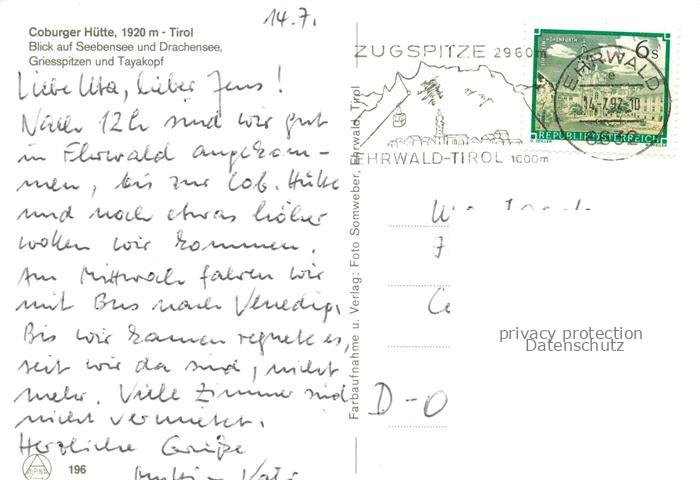 14.7.
Coburger Hütte, 1920 m - Tirol
Blick auf Seebensee und Drachensee,
Griesspitzen und Tayakopf
Liebe Uta, lieber Jens!
Nach 12h sind wir gut
in Ehrwald angekom-
men, bis zur Cob. Hütte
und noch etwas höher
wollen wir kommen.
Am Mittwoch fahren wir
mit Bus nach Venedig.
Bis wir kamen regnete es,
seit wir da sind, nicht
mehr. Viele Zimmer sind
nicht vermietet.
Herzliche Grüße
196
Farbaufnahme u. Verlag: Foto Somweber, Ehrwald, Tirol
ZUGSPITZE 2960m
EHRWALD-TIROL 1000m
6s
REPUBLIK ÖSTERREICH
EHRWALD
14.7.92-10
6632
D-O
privacy protection
Datenschutz